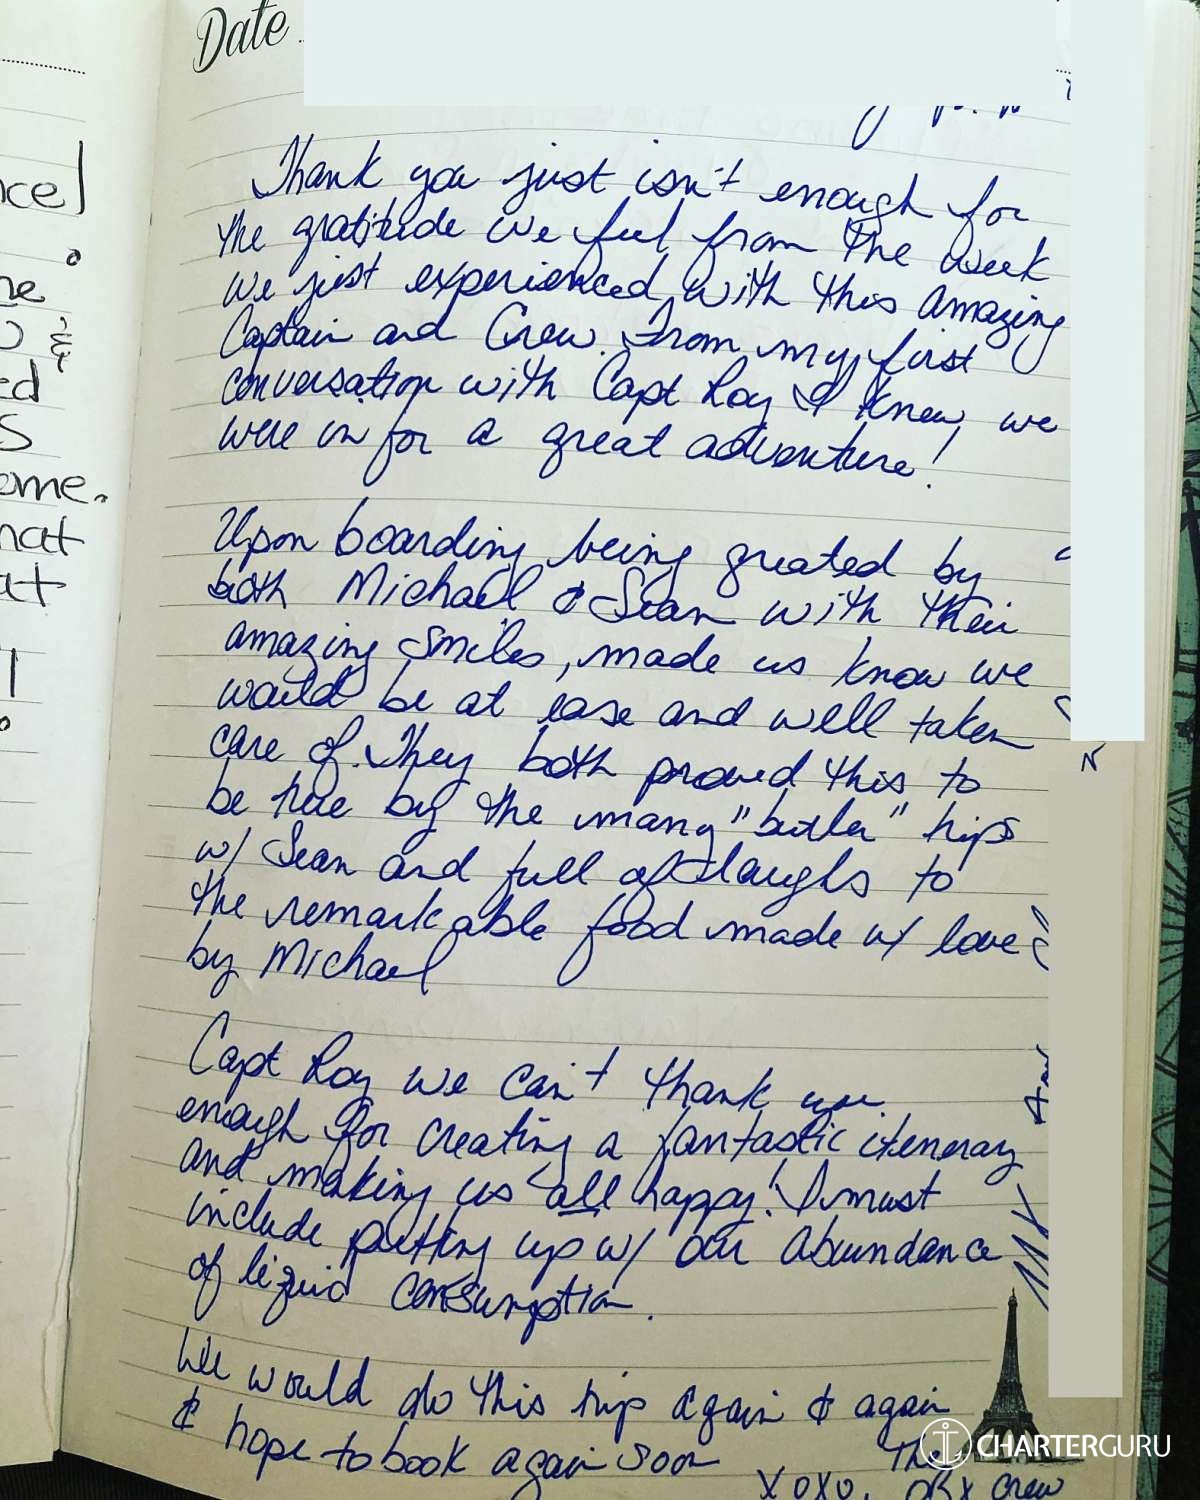 Date
Thank you just isn't enough for
the gratitude we feel from the week
we just experienced with this amazing
Captain and Crew. From my first
conversation with Capt Roy I knew we
were in for a great adventure!
Upon boarding being greated by
both Michael & Sean with their
amazing smiles, made us know we
would be at ease and well taken
care of. They both proved this to
be true by the many "butler" trips
w/ Sean and full of laughs to
the remarkable food made w/ love
by Michael
Capt Roy we can't thank you
enough for creating a fantastic itenerary
and making us all happy! I must
include putting up w/ our abundance
of liquid consumption.
We would do this trip again & again
& hope to book again soon
The
XOXO, OBX Crew
CHARTERGURU
nce
ne
&
ed
S
ome.
hat
at